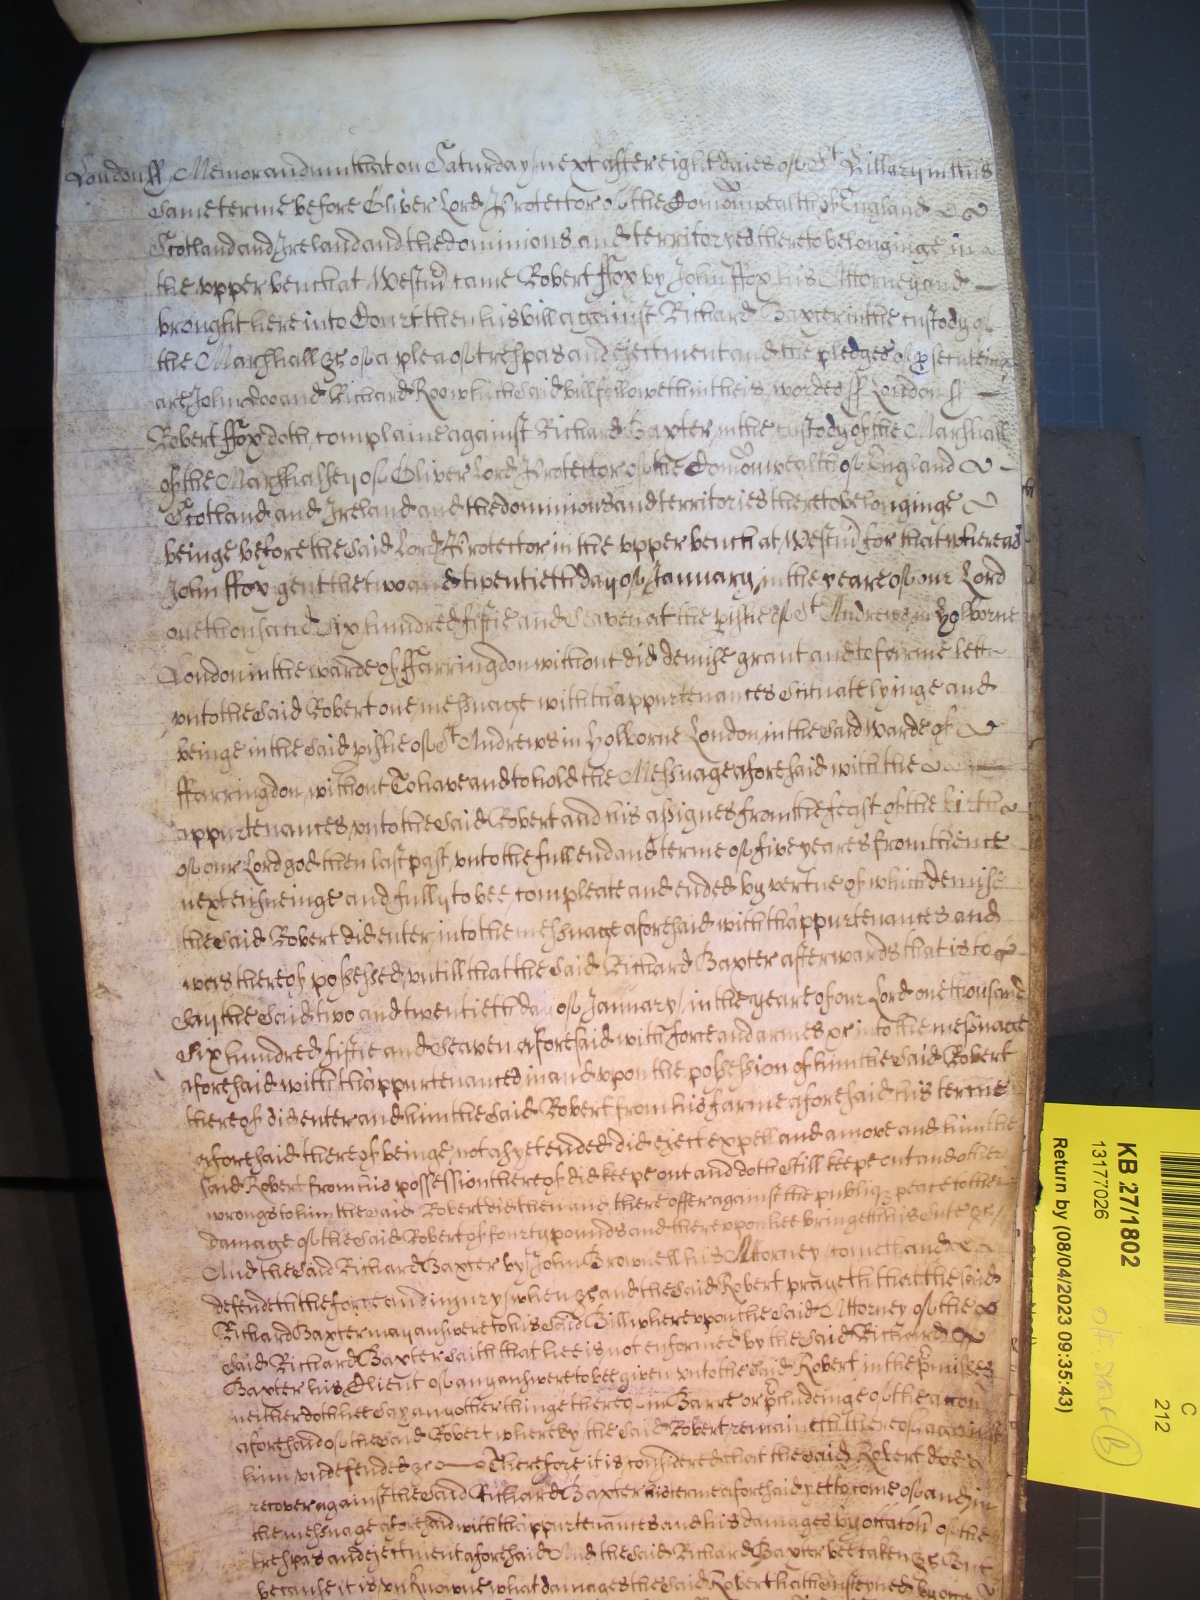 London ss Memorandum that on Saturday next after eight daies of St Hillary in this
same terme before Oliver Lord Protector of the Comonwealth of England
Scotland and Ireland and the dominions and territoryes thereto belonginge in
the upper bench at Westmr came Robert ffox by John ffox his Attorney and
brought here into Court then his bill against Richard Baxter in the custody of
the Marshall &c of a plea of trespas and ejectment and the pledges of psecuteing
are John Doo and Richard Roo which said bill followeth in theis wordes ss London ss
Robert ffox doth complaine against Richard Baxter in the custody of the Marshall
of the Marshallsey of Oliver Lord Protector of the Comonwealth of England
Scotland and Ireland and the dominions and territories thereto belonginge
beinge before the said Lord Protector in the upper bench at Westmr for that whereas
John ffox gent the two and twentieth day of January in the yeare of our Lord
one thousand six hundred fiftie and seaven at the pishe of St Andrewes in Holborne
London in the warde of ffarringdon without did demise grant and to farme lett
unto the said Robert one messuage with th'appurtenances scituate lyinge and
beinge in the said pishe of St Andrews in Holborne London in the said warde of
ffarringdon without To have and to hold the Messuage aforesaid with the
appurtenances unto the said Robert and his assignes from the feast of the birth
of our Lord god then last past unto the full end and terme of five yeares from thence
next ensueinge and fully to bee compleate and ended by vertue of which demise
the said Robert did enter into the messuage aforesaid with th'appurtenances and
was thereof possessed untill that the said Richard Baxter afterwards that is to
say the said two and twentieth day of January in the yeare of our Lord one thousand
six hundred fiftie and seaven aforesaid with force and armes &c into the messuage
aforesaid with th'appurtenances in and upon the possession of him the said Robert
thereof did enter and him the said Robert from his farme aforesaid his terme
aforesaid thereof beinge not as yet ended did eject expell and amove and him the
said Robert from his possession thereof did keepe out and doth still keepe out and other
wrongs to him the said Robert did then and there offer against the publiq peace to the
damage of the said Robert of fourty pounds and thereupon hee bringeth his sute &c
And the said Richard Baxter by John Brownell his Attorney cometh and
defendeth the force and injury when &c and the said Robert prayeth that the said
Richard Baxter may answere to his said Bill whereupon the said Attorney of the
said Richard Baxter saith that hee is not enformed by the said Richard
Baxter his Client of any answere to bee given unto the said Robert in the pmisses
neither doth hee say any other thinge thereof in Barre or pcludeinge of the accon
aforesaid of the said Robert whereby the said Robert remaineth thereof against
him undefended &c Therefore it is considered that the said Robert doe
recover against the said Richard Baxter his terme aforesaid yet to come of and in
the messuage aforesaid with th'appurtenances and his damages by occacon of the
trespas and ejectment aforesaid And the said Richard Baxter bee taken &c But
because it is unknowne what damages the said Robert hath susteyned by
KB 27/1802
13177026
Return by (08/04/2023 09:35:43)
C
212